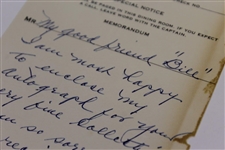 SPECIAL NOTICE
BE PAGED IN THIS DINING ROOM, IF YOU EXPECT
A CALL, LEAVE WORD WITH THE CAPTAIN.
MEMORANDUM
MR. My good friend "Bill"
I am most happy
to enclose my
autograph for your
very fine collecti
am so sorry